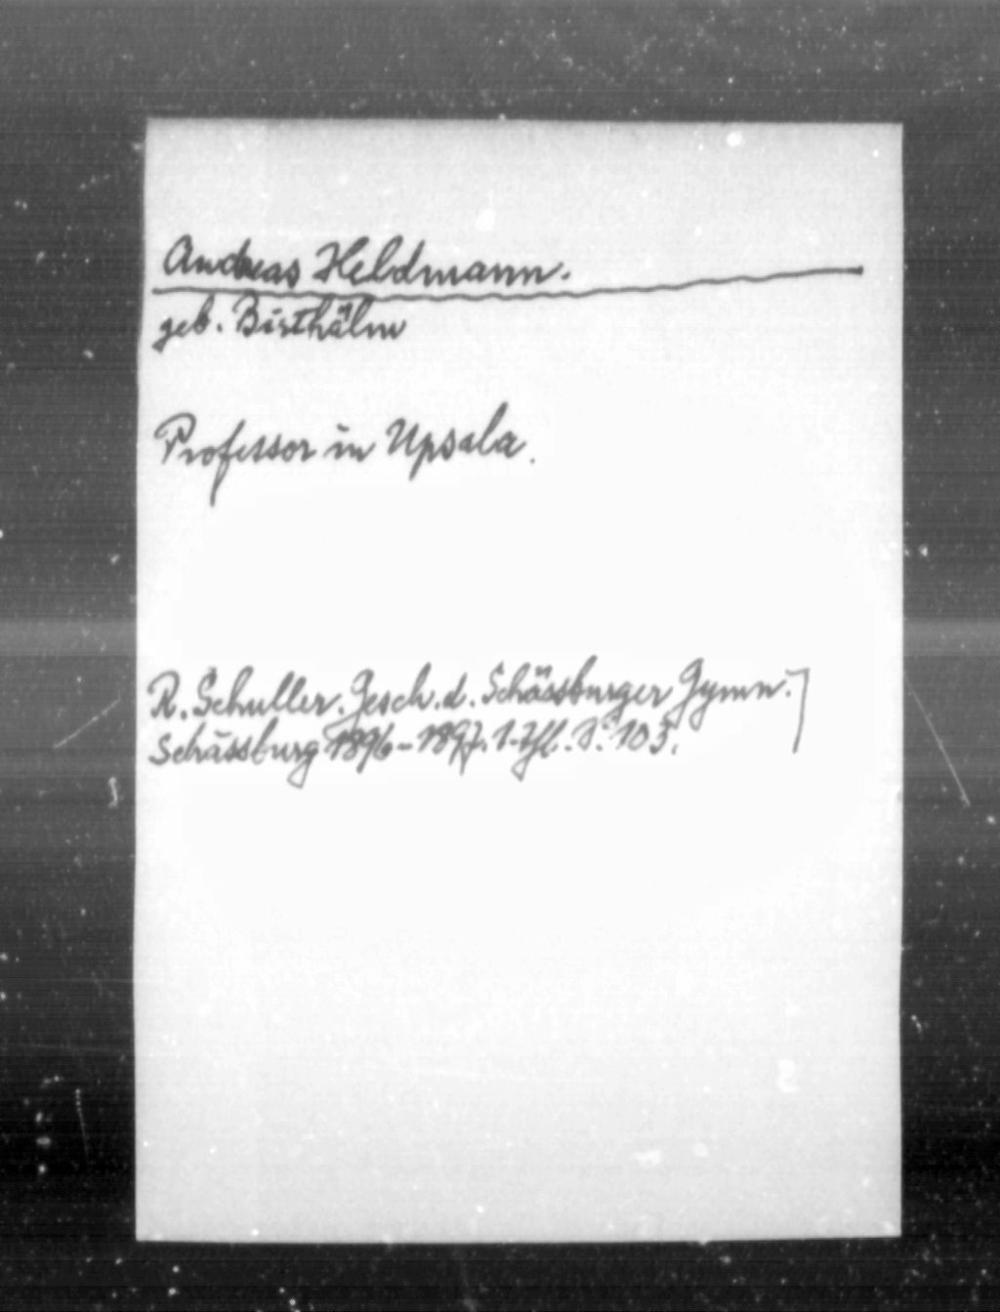 Andreas Heldmann.
geb. Birthälm
Professor in Upsala.
R. Schuller. Gesch. d. Schässburger Gymn.
Schässburg 1896-1897. 1. Thl. S. 103.